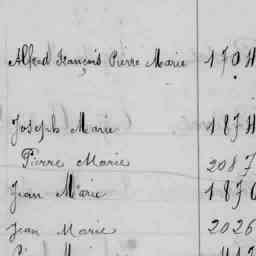 Alfred François Pierre Marie 170
Joseph Marie 187
Pierre Marie 2087
Jean Marie 1870
Jean Marie 2026